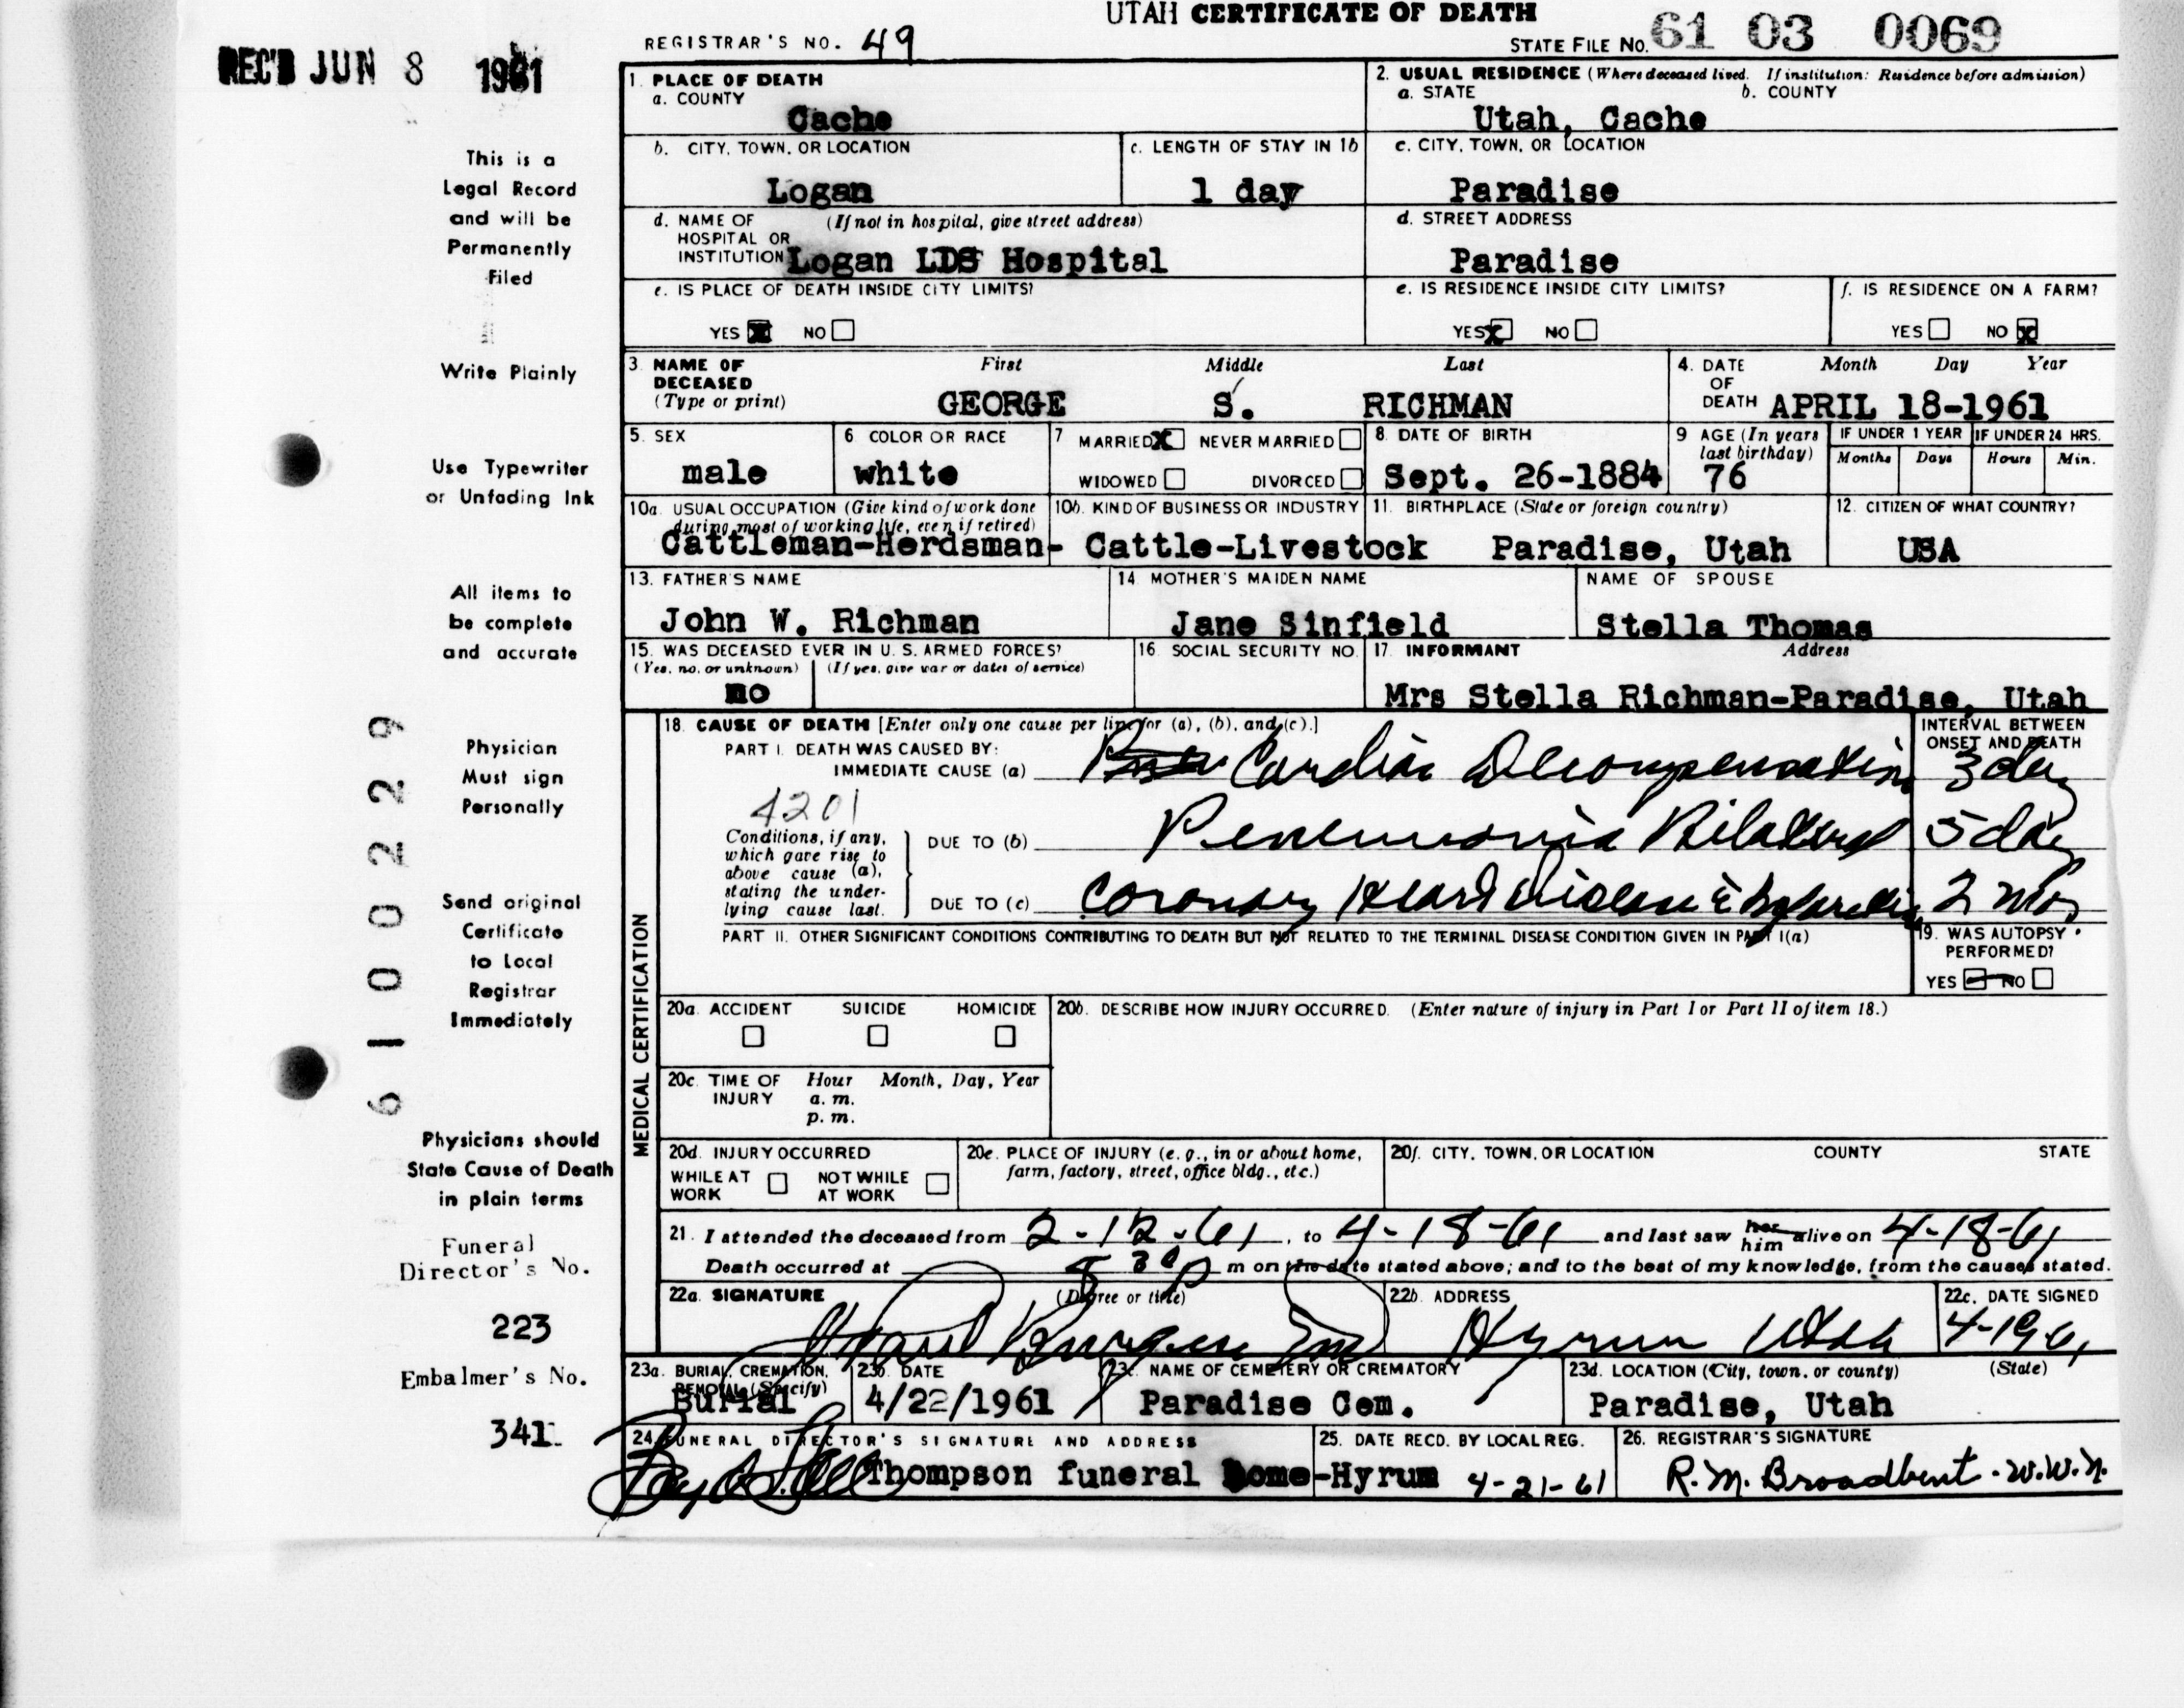 UTAH CERTIFICATE OF DEATH
REGISTRAR'S NO. 49
STATE FILE No. 61 03 0069
REC'D JUN 8 1961
1. PLACE OF DEATH
a. COUNTY
Cache
2. USUAL RESIDENCE (Where deceased lived. If institution: Residence before admission)
a. STATE b. COUNTY
Utah, Cache
b. CITY, TOWN, OR LOCATION
Logan
c. LENGTH OF STAY IN 1b
1 day
c. CITY, TOWN, OR LOCATION
Paradise
d. NAME OF (If not in hospital, give street address)
HOSPITAL OR
INSTITUTION Logan LDS Hospital
d. STREET ADDRESS
Paradise
e. IS PLACE OF DEATH INSIDE CITY LIMITS?
YES X NO
e. IS RESIDENCE INSIDE CITY LIMITS?
YES X NO
f. IS RESIDENCE ON A FARM?
YES NO X
3. NAME OF DECEASED (Type or print)
First Middle Last
GEORGE S. RICHMAN
4. DATE OF DEATH
Month Day Year
APRIL 18-1961
5. SEX
male
6 COLOR OR RACE
white
7 MARRIED X NEVER MARRIED
WIDOWED DIVORCED
8. DATE OF BIRTH
Sept. 26-1884
9 AGE (In years last birthday)
76
IF UNDER 1 YEAR IF UNDER 24 HRS.
Months Days Hours Min.
10a. USUAL OCCUPATION (Give kind of work done
during most of working life, even if retired)
Cattleman-Herdsman-
10b. KIND OF BUSINESS OR INDUSTRY
Cattle-Livestock
11. BIRTHPLACE (State or foreign country)
Paradise, Utah
12. CITIZEN OF WHAT COUNTRY?
USA
13. FATHER'S NAME
John W. Richman
14 MOTHER'S MAIDEN NAME
Jane Sinfield
NAME OF SPOUSE
Stella Thomas
15. WAS DECEASED EVER IN U. S. ARMED FORCES?
(Yes, no, or unknown) (If yes, give war or dates of service)
no
16. SOCIAL SECURITY NO.
17. INFORMANT Address
Mrs Stella Richman-Paradise, Utah
MEDICAL CERTIFICATION
18. CAUSE OF DEATH [Enter only one cause per line for (a), (b), and (c).]
INTERVAL BETWEEN
ONSET AND DEATH
PART I. DEATH WAS CAUSED BY:
IMMEDIATE CAUSE (a) Cardiac Decompensation 3 day
4201
Conditions, if any,
which gave rise to
above cause (a),
stating the under-
lying cause last.
DUE TO (b) Penemonia Bilateral 5 day
DUE TO (c) Coronary Heart Disease c̄ 2 mos
PART II. OTHER SIGNIFICANT CONDITIONS CONTRIBUTING TO DEATH BUT NOT RELATED TO THE TERMINAL DISEASE CONDITION GIVEN IN PART I(a)
19. WAS AUTOPSY
PERFORMED?
YES NO
20a. ACCIDENT SUICIDE HOMICIDE
20b. DESCRIBE HOW INJURY OCCURRED. (Enter nature of injury in Part I or Part II of item 18.)
20c. TIME OF INJURY
Hour Month, Day, Year
a. m.
p. m.
20d. INJURY OCCURRED
WHILE AT WORK NOT WHILE AT WORK
20e. PLACE OF INJURY (e. g., in or about home,
farm, factory, street, office bldg., etc.)
20f. CITY, TOWN, OR LOCATION COUNTY STATE
21. I attended the deceased from 2-12-61, to 4-18-61 and last saw her him alive on 4-18-61
Death occurred at 8 30 p m on the date stated above; and to the best of my knowledge, from the causes stated.
22a. SIGNATURE (Degree or title)
22b. ADDRESS
Hyrum Utah
22c. DATE SIGNED
4-19-61
23a. BURIAL, CREMATION,
REMOVAL (Specify)
Burial
23b. DATE
4/22/1961
23c. NAME OF CEMETERY OR CREMATORY
Paradise Cem.
23d. LOCATION (City, town, or county) (State)
Paradise, Utah
24. FUNERAL DIRECTOR'S SIGNATURE AND ADDRESS
Thompson funeral Home-Hyrum
25. DATE RECD. BY LOCAL REG.
4-21-61
26. REGISTRAR'S SIGNATURE
R. M. Broadbent - W.W.N.
This is a
Legal Record
and will be
Permanently
Filed
Write Plainly
Use Typewriter
or Unfading Ink
All items to
be complete
and accurate
Physician
Must sign
Personally
Send original
Certificate
to Local
Registrar
Immediately
Physicians should
State Cause of Death
in plain terms
Funeral
Director's No.
223
Embalmer's No.
341
6100229